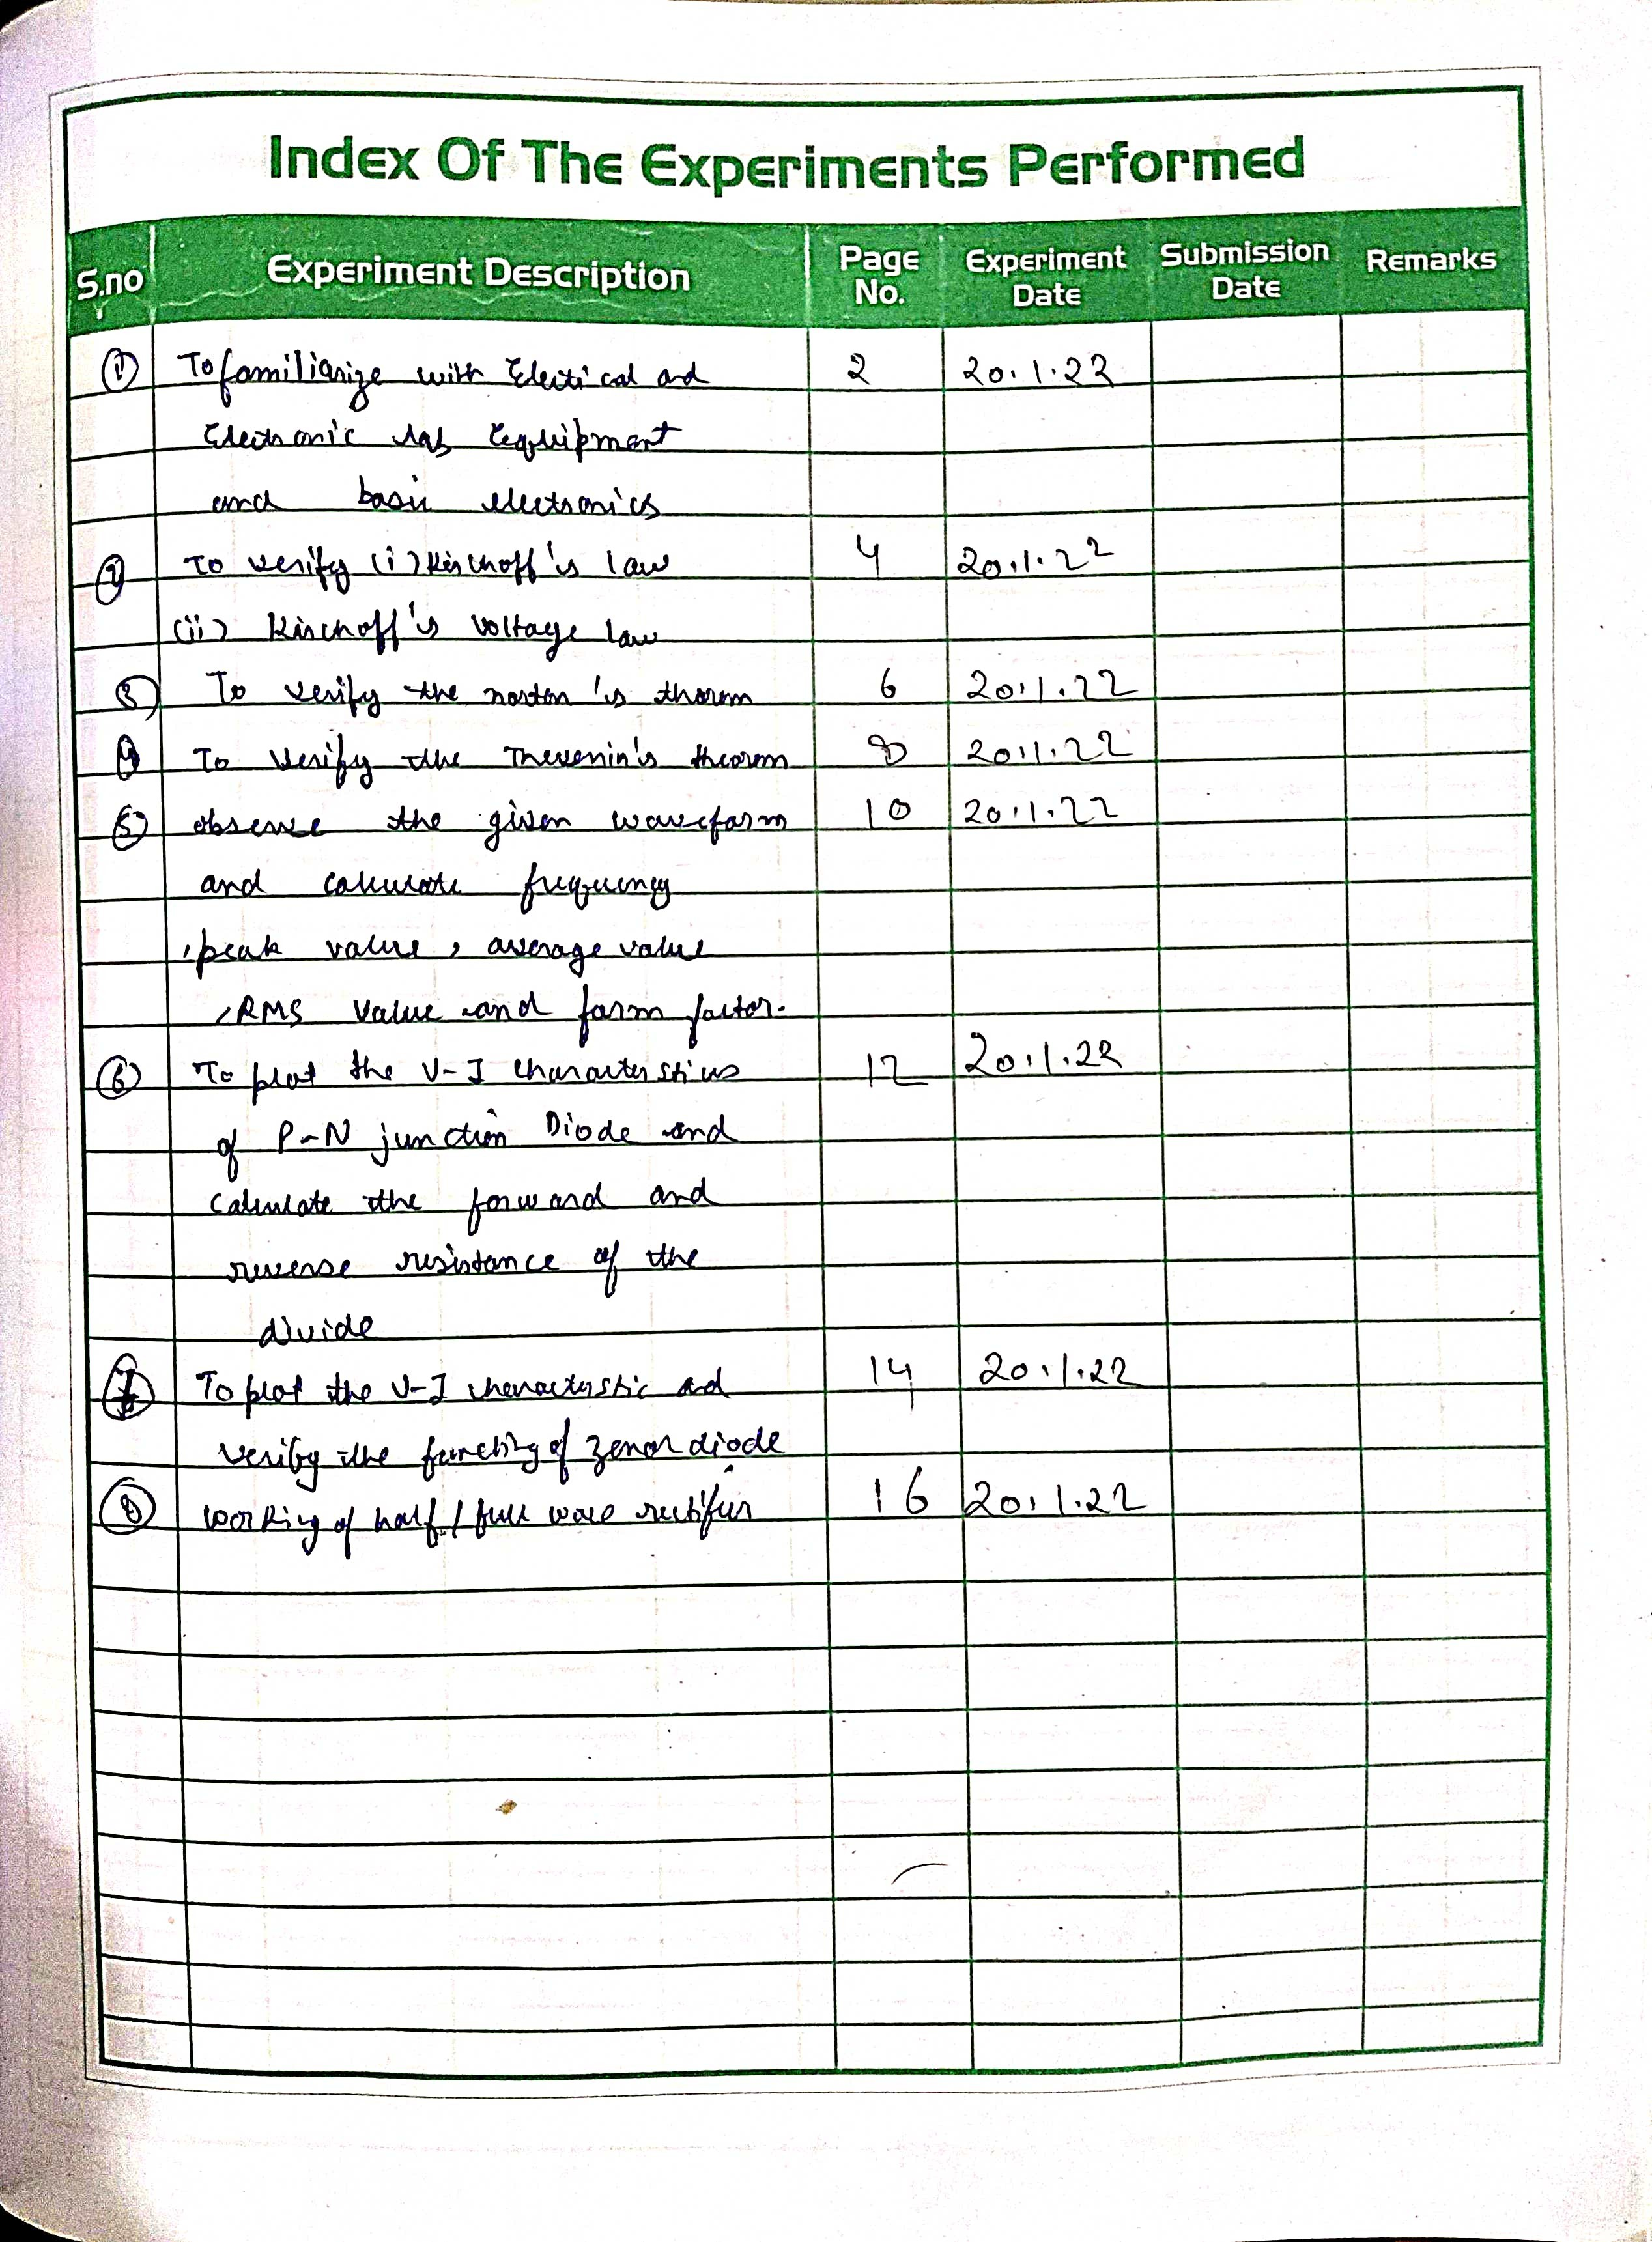 Index Of The Experiments Performed
S.no Experiment Description Page No. Experiment Date Submission Date Remarks
① To familiarize with Electical ad 2 20.1.22
Electronic lab Equipment
and basic electronics
② To verify (i) Kirchoff's law 4 20.1.22
(ii) Kirchoff's voltage law
③ To verify the norton's thorem 6 20.1.22
④ To Verify the Thevenin's theorem 8 20.1.22
⑤ observe the given waveform 10 20.1.22
and calculate frequency
, peak value, average value
, RMS value and form factor.
⑥ To plot the V-I characterstics 12 20.1.22
of P-N junction Diode and
calculate the forward and
reverse resistance of the
divide
⑦ To plot the V-I cheracterstic ad 14 20.1.22
verify the of zenor diode
⑧ working of half / full wave rectifier 16 20.1.22